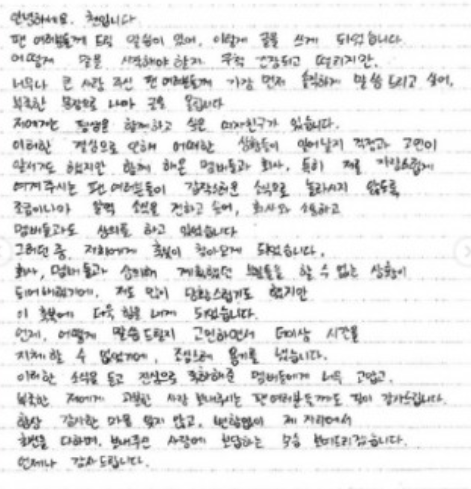 안녕하세요. 첸입니다
팬 여러분들께 드릴 말씀이 있어, 이렇게 글을 쓰게 되었습니다
어떻게 말을 시작해야 할지 무척 긴장되고 떨리지만,
너무나 큰 사랑 주신 팬 여러분들께 가장 먼저 솔직하게 말씀 드리고 싶어,
부족한 문장으로 나마 글을 올립니다
저에게는 평생을 함께하고 싶은 여자친구가 있습니다.
이러한 결심으로 인해 어떠한 상황들이 일어날지 걱정과 고민이
앞서기도 했지만 함께 해온 멤버들과 회사, 특히 저를 자랑스럽게
여겨주시는 팬 여러분들이 갑작스러운 소식으로 놀라시지 않도록
조금이나마 일찍 소식을 전하고 싶어, 회사와 소통하고
멤버들과도 상의를 하고 있었습니다
그러던 중, 저희에게 축복이 찾아오게 되었습니다.
회사, 멤버들과 상의해 계획했던 부분들을 할 수 없는 상황이
되어버렸기에, 저도 많이 당황스럽기도 했지만
이 축복에 더욱 힘을 내게 되었습니다.
언제, 어떻게 말씀드릴지 고민하면서 더이상 시간을
지체 할 수 없었기에, 조심스레 용기를 냈습니다.
이러한 소식을 듣고 진심으로 축하해준 멤버들에게 너무 고맙고,
부족한 저에게 과분한 사랑 보내주시는 팬 여러분들께도 깊이 감사드립니다.
항상 감사한 마음 잊지 않고, 변함없이 제 자리에서
최선을 다하며, 보내주신 사랑에 보답하는 모습 보여드리겠습니다.
언제나 감사드립니다.